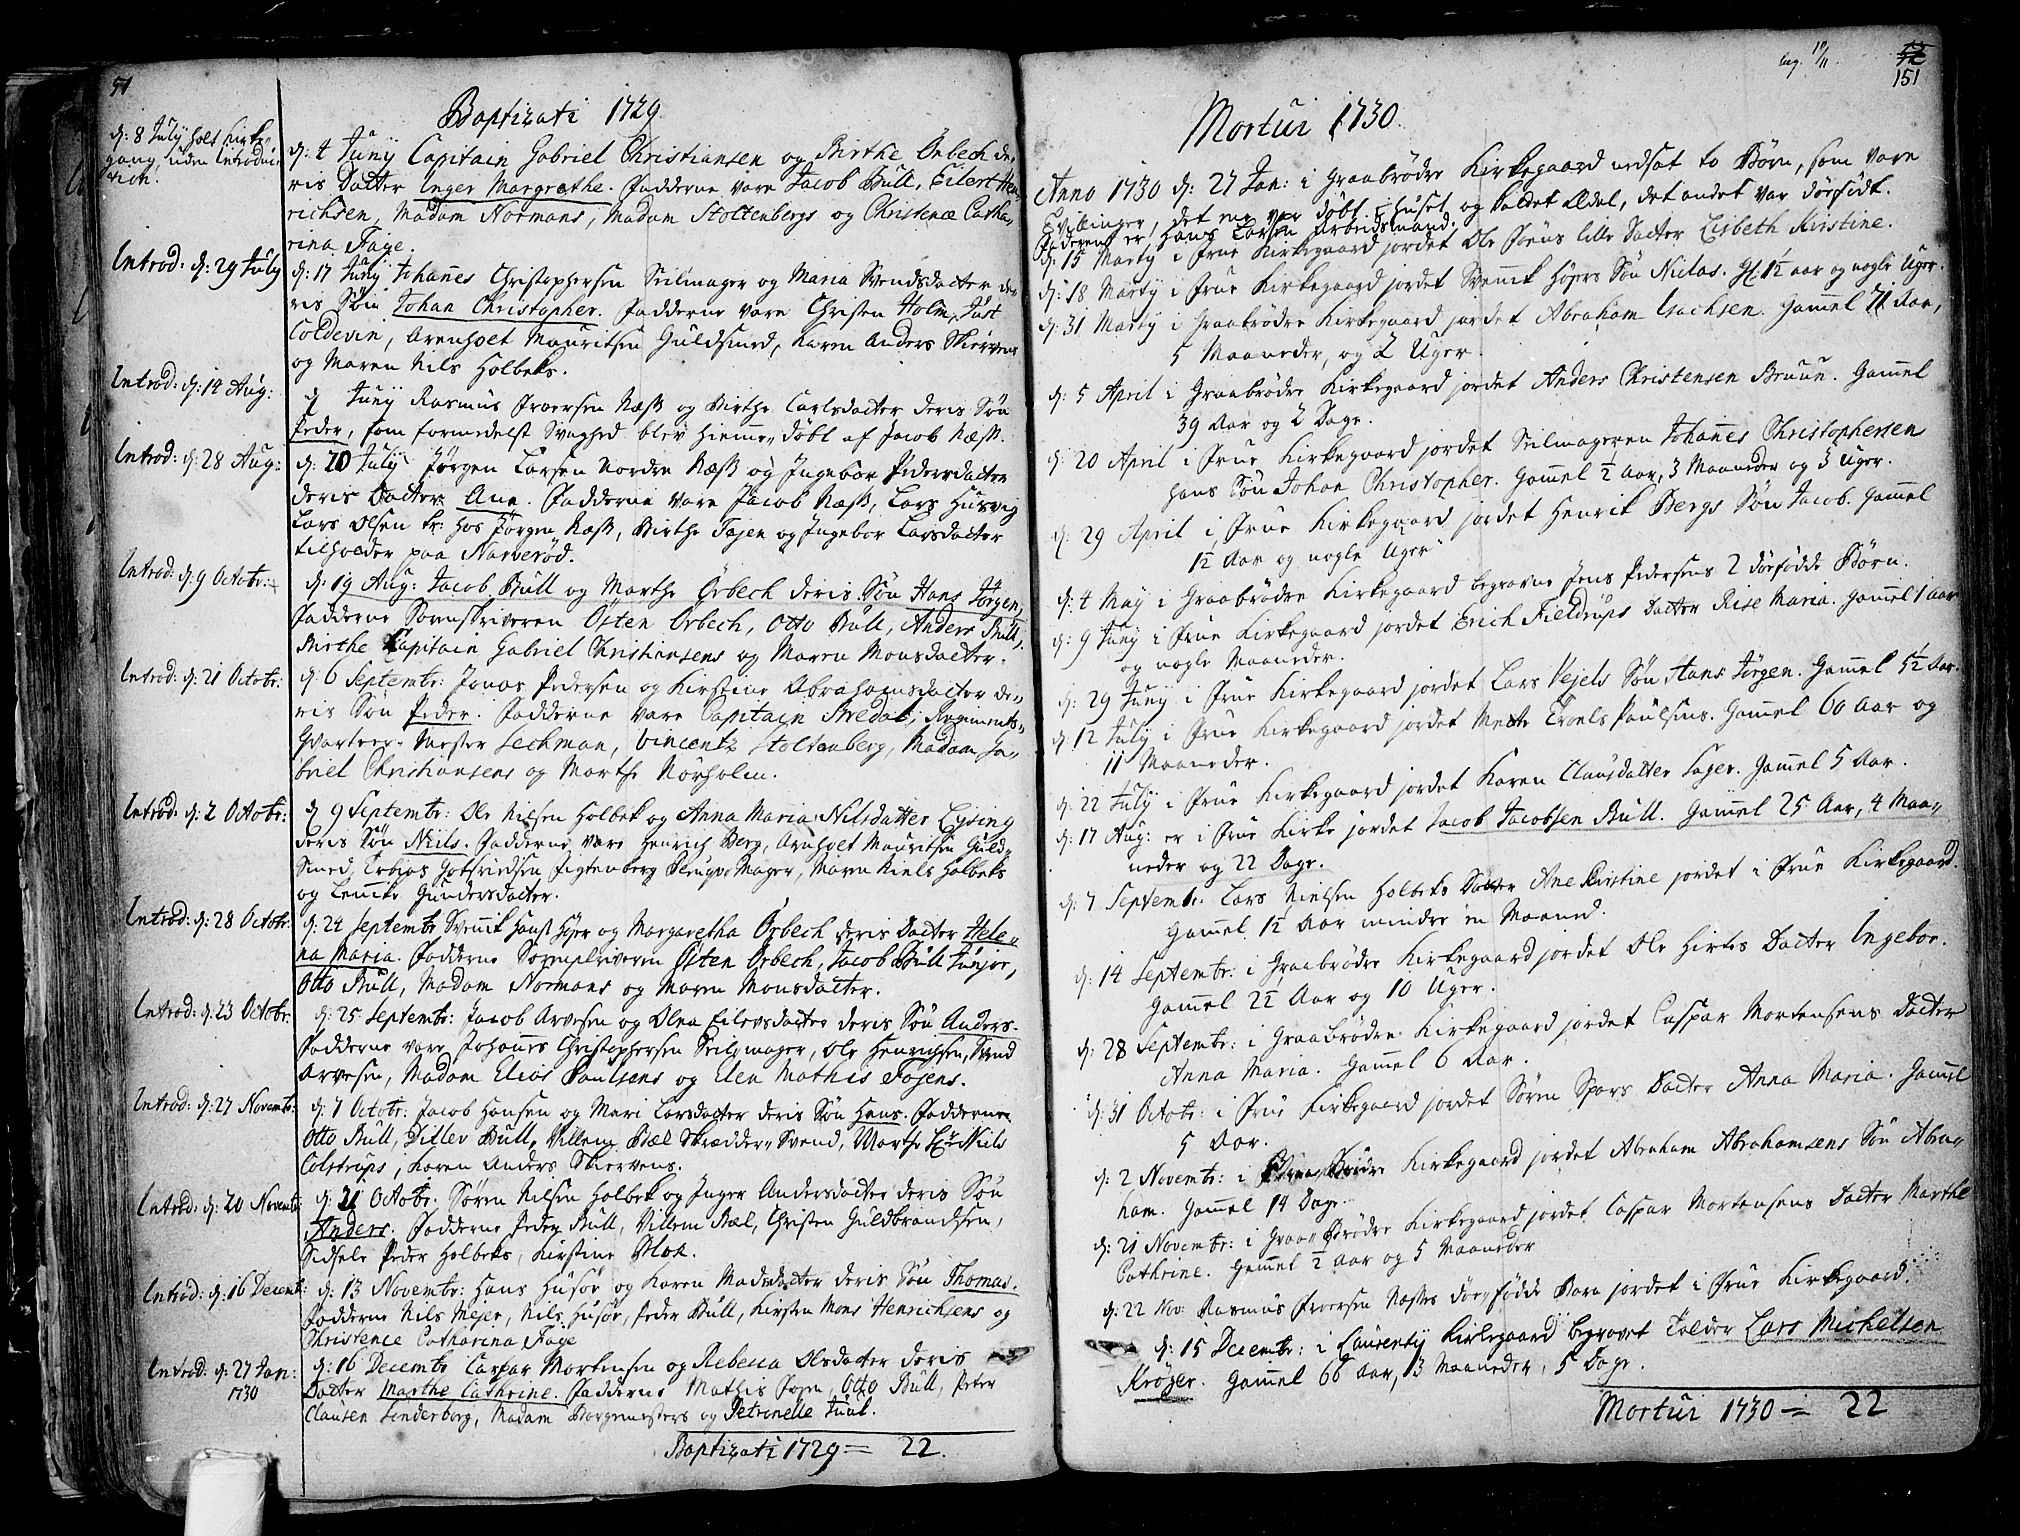 51
Baptizati 1729
d: 8 July holt Kirke-
gang uden Introduce-
rich.
d: 4 Juny Capitain Gabriel Christiansen og Birthe Örbech de,
ris Datter Inger Margrethe. Fadderne vare Jacob Bull, Eilert Hen,
richsen, Madam Normans, Madam Stoltenbergs og Christence Catha,
rina Faye.
Introd: d: 29 July
d: 17 Juny Johannes Christophersen Seilmager og Maria Svendsdatter de,
ris Søn Johan Christopher. Fadderne vare Christen Holm, Just
Coldevin, Arenholt Mauritsen Guldsmed, Karen Anders Skiervens
og Maren Nils Holbeks.
Introd: d: 14 Aug:
d Juny Rasmus Iversen Næss og Birthe Carlsdatter deris Søn
Peder, som formedelst Svaghed blev hiemme,, døbt af Jacob Næss.
Introd: d: 28 Aug:
d: 20 July Jørgen Larsen Nordre Næss og Ingebor Pedersdatter
deris Datter Ane. Fadderne vare Jacob Næss, Lars Husvig
Lars Olsen tr: hos Jørgen Næss, Birthe Fajen og Ingebor Larsdatter
tilholder paa Narverød.
Introd: d: 9 Octobr:
d: 19 Aug: Jacob Bull og Marthe Örbech deris Søn Hans Jørgen,
Fadderne Sorenskriveren Östen Örbech, Otto Bull, Anders Bull,
Birthe Capitain Gabriel Christiansens og Maren Monsdatter.
Introd: d: 21 Octobr:
d: 6 Septembr: Jonas Pedersen og Kirstine Abrahamsdatter de,
ris Søn Peder. Fadderne vare Capitain Bredal, Regiments,,
Qvarteer-Mester Lechman, Vincents Stoltenberg, Madam Ga,
briel Christiansens og Marthe Norholm.
Introd: d: 2 Octobr:
d 9 Septembr: Ole Nielsen Holbek og Anna Maria Nilsdatter Lysing
deris Søn Niils. Fadderne vare Henrich Berg, Arnholt Mauritsen Guld,,
Smed, Tobias Gotfriedsen Figtenberg Peruqve Mager, Maren Niels Holbeks
og Lemche Gundersdatter.
Introd: d: 28 Octobr:
d: 24 Septembr Svennik Hans Høyer og Margaretha Örbech deris Datter Hele,,
na Maria. Fadderne Sorenskriveren Östen Örbech, Jacob Bull Junior,
Otto Bull, Madam Normans og Maren Monsdatter.
Introd: d: 23 Octobr:
d: 25 Septembr: Jacob Arvesen og Olea Eilevsdatter deris Søn Anders.
Fadderne vare Johannes Christophersen Seilmager, Ole Henrichsen, Svend
Arvesen, Madam Elias Paulsens og Elen Mathis Fojens.
Introd: d: 27 Novembr:
d: 7 Octobr: Jacob Hansen og Mari Larsdatter deris Søn Hans. Fadderne
Otto Bull, Ditlev Bull, Villem Bæl Skrædder,, Svend, Marthe Niels
Colstrups, Karen Anders Skiervens.
Introd: d: 20 Novembr
d: 21 Octobr: Søren Nilsen Holbek og Inger Andersdatter deris Søn
Anders. Fadderne Peder Bull, Villem Bæl, Christen Guldbrandsen,
Sidsele Peder Holbeks, Kirstine Blok.
Introd: d: 16 Decemb:
d: 13 Novembr: Hans Husør og Karen Madsdatter deris Søn Thomas.
Fadderne Nils Mejer, Nils Husør, Peder Bull, Kirsten Mons Henrichsens og
Christence Catharina Faye
Introd: d: 27 Jan:
1730
d: 16 Decembr Caspar Mortensen og Rebecca Olsdatter deris
Datter Marthe Cathrine. Fadderne Mathis Fojen, Otto Bull, Peter
Clausen Sonderborg, Madam Borgemesters og Petronelle Juul.
Baptizati 1729 = 22.
12
151
Mortui 1730.
Anno 1730 d: 27 Jan: i Graabrødre Kirkegaard nedsat to Børn, som vare
Tvillinger, det ene var døbt i huset og kaldet Ædel, det andet var dødfødt.
Faderen er, Hans Larsen Arbeidsmand.
d: 15 Marty i Frue Kirkegaard jordet Ole Foens lille Datter Lisbeth Kirstine.
d: 18 Marty i Frue Kirkegaard jordet Svennik Høyers Søn Niclas. Gl. 1½ aar og nogle Uger.
d: 31 Marty i Graabrødre Kirkegaard jordet Abraham Isachsen. Gammel 71 Aar,
5 Maaneder, og 2 Uger.
d: 5 April i Graabrødre Kirkegaard jordet Anders Christensen Bruun. Gammel
39 Aar og 2 Dage.
d: 20 April i Frue Kirkegaard jordet Seilmageren Johannes Christophersen
hans Søn Johan Christopher. Gammel ½ Aar, 3 Maaneder og 3 Uger.
d: 29 April i Frue Kirkegaard jordet Henrik Bergs Søn Jacob. Gammel
1½ Aar og nogle Uger
d: 4 May i Graabrødre Kirkegaard begravne Jens Pedersens 2 dødfødde Børn.
d: 9 Juny i Frue Kirkegaard jordet Erich Fieldrups Datter Rise Maria. Gammel 1 aar
og nogle Maaneder.
d: 29 Juny i Frue Kirkegaard jordet Lars Vejels Søn Hans Jørgen. Gammel 5½ Aar.
d: 12 July i Frue Kirkegaard jordet Mette Troels Paulsens. Gammel 60 Aar og
11 Maaneder.
d: 22 July i Frue Kirkegaard jordet Karen Clausdatter Sager. Gammel 5 Aar.
d: 17 Aug: er i Frue Kirke jordet Jacob Jacobsen Bull. Gammel 25 Aar, 4 Maa,,
neder og 22 Dage.
d: 7 Septembr: Lars Nielsen Holbeks Datter Ane Kirstine jordet i Frue Kirkegaard.
Gammel 1½ Aar mindre en Maaned.
d: 14 Septembr: i Graabrødre Kirkegaard jordet Ole Hirtes Datter Ingebor.
Gammel 2½ Aar og 10 Uger.
d: 28 Septembr: i Graabrødre Kirkegaard jordet Caspar Mortensens Datter
Anna Maria. Gammel 6 Aar.
d: 31 Octobr: i Frue Kirkegaard jordet Søren Spars Datter Anna Maria. Gammel
5 Aar.
d: 2 Novembr: i Graa,, Brødre Kirkegaard jordet Abraham Abrahamsens Søn Abra,,
ham. Gammel 14 Dage.
d: 21 Novembr: i Graa,, Brødre Kirkegaard jordet Caspar Mortensens Datter Marthe
Cathrine. Gammel ½ Aar og 5 Maaneder
d: 22 Nov: Rasmus Iversen Næsses død,, fødde Barn jordet i Frue Kirkegaard.
d: 15 Decembr: i Laurenty Kirkegaard begravet Tolder Lars Michelsen
Krøyer. Gammel 66 Aar, 3 Maaneder, 5 Dage.
Mortui 1730 = 22